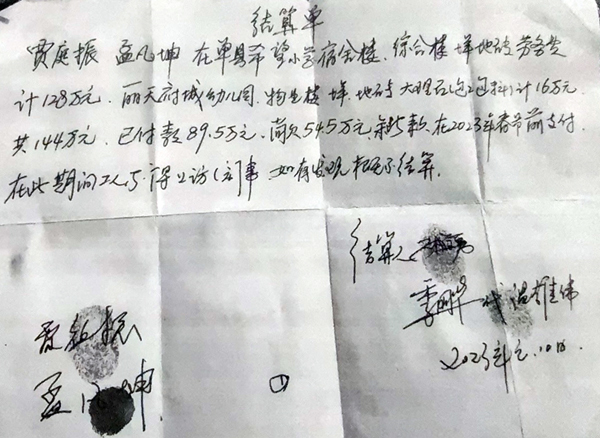 结算单
贾庭振 孟凡坤 在单县希望小学宿舍楼、综合楼 墙地砖劳务费
计128万元. 丽天府城幼儿园. 物业楼 墙、地砖 大理石(包工包料)计16万元.
共144万元. 已付款89.5万元, 尚欠54.5万元, 余款在2023年春节前支付.
在此期间工人不得上访 事 如有发现 不结算.
结算人
孟凡坤
①
2023年元.10日